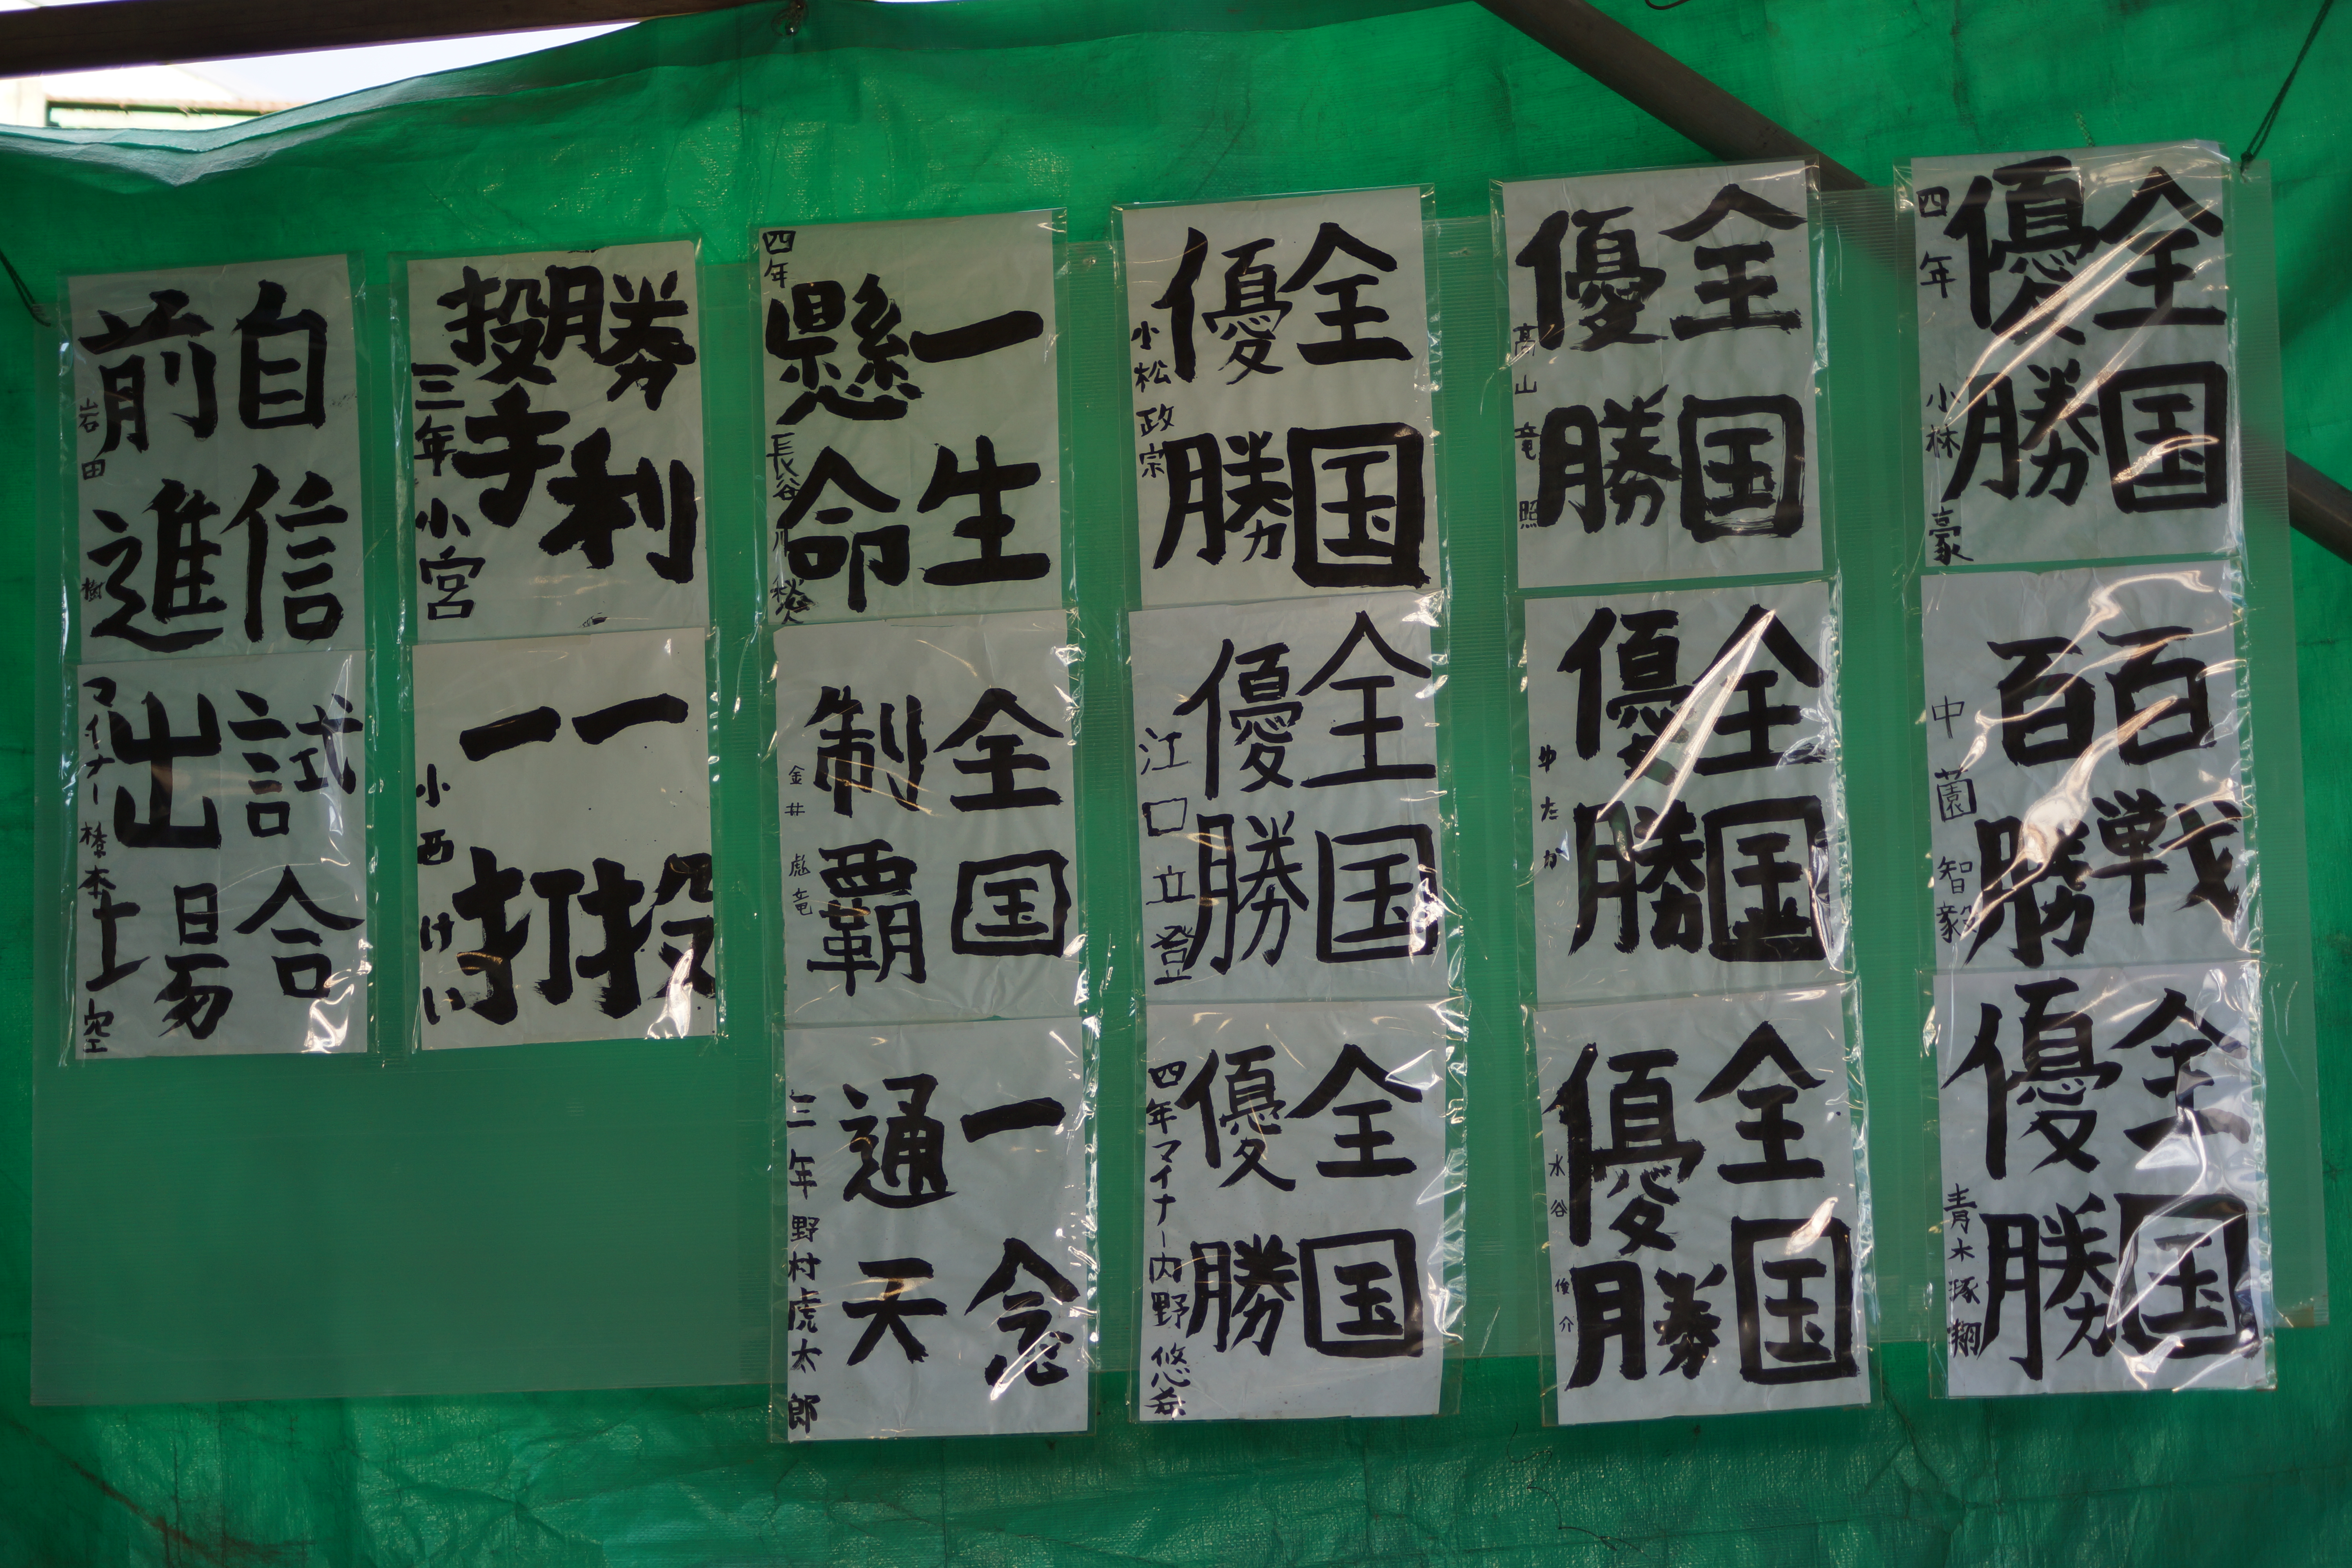 全国
優勝
四年 小林 豪
百戦
百勝
中薗 智毅
全国
優勝
青木琢翔
全国
優勝
高山 竜照
全国
優勝
ゆたか
全国
優勝
水谷 俊介
全国
優勝
小松政宗
全国
優勝
江口 立登
全国
優勝
四年マイナー内野 悠希
一生
懸命
四年 長谷川
全国
制覇
金井 彪竜
一念
通天
三年 野村虎太郎
勝利
投手
三年 小宮
一投
一打
小西 けい
自信
前進
岩田 樹
試合
出場
マイナー 橋本 空